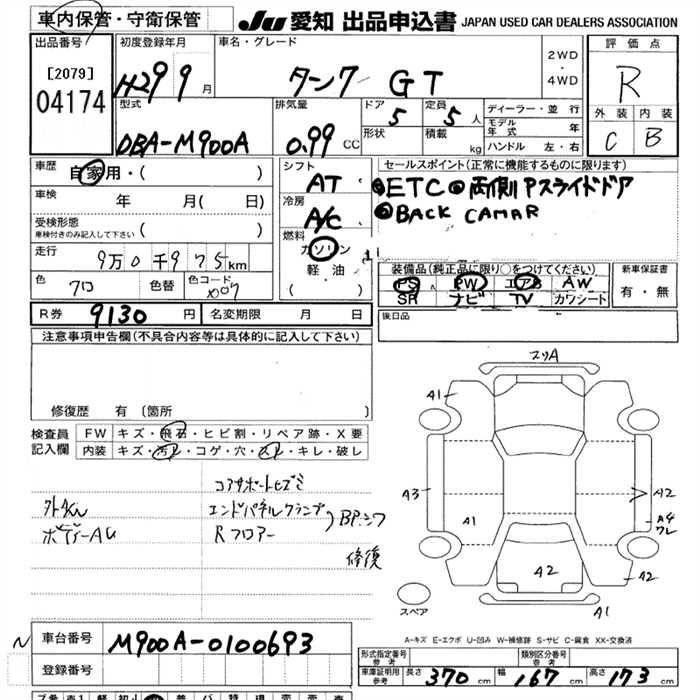 車内保管・守衛保管
JU 愛知 出品申込書 JAPAN USED CAR DEALERS ASSOCIATION
出品番号
[2079]
04174
初度登録年月
H29 9月
車名・グレード
タンク GT
2WD
・
4WD
評価点
R
外装 内装
C B
型式
DBA-M900A
排気量
0.99 CC
ドア
5
形状
定員
5人
積載
kg
ディーラー・並行
モデル年式 年
ハンドル 左・右
車歴
自家用・( )
車検
年 月( 日)
受検形態
車検付きのみ記入して下さい ( )
走行
9万0千975km
色
クロ
色替
色コード
X07
シフト
AT
冷房
A/C
燃料
ガソリン
軽油
( ・ )
セールスポイント(正常に機能するものに限ります)
●ETC ●両側Pスライドドア
●BACK CAMAR
装備品(純正品に限り○をつけてください)
PS PW エアB AW
SR ナビ TV カワシート
新車保証書
有・無
後日品
R券 9130円
名変期限 月 日
注意事項申告欄(不具合内容等は具体的に記入して下さい)
修復歴 有 〔箇所 〕
検査員記入欄
FW キズ・飛石・ヒビ割・リペア跡・X要
内装 キズ・汚レ・コゲ・穴・スレ・キレ・破レ
コアサポートヒズミ
エンドパネルクランプ
Rフロアー
BP.シワ
修復
ボデーAU
スリA
A1
A3
A1
A2
A4
ワレ
A2
A2
A1
スペア
A-キズ E-エクボ U-凹み W-補修跡 S-サビ C-腐食 XX-交換済
車台番号
M900A-0100693
登録番号
形式指定番号
参考
類別区分番号
参考
車庫証明用
参考
長さ 370 cm
幅 167 cm
高さ 173 cm